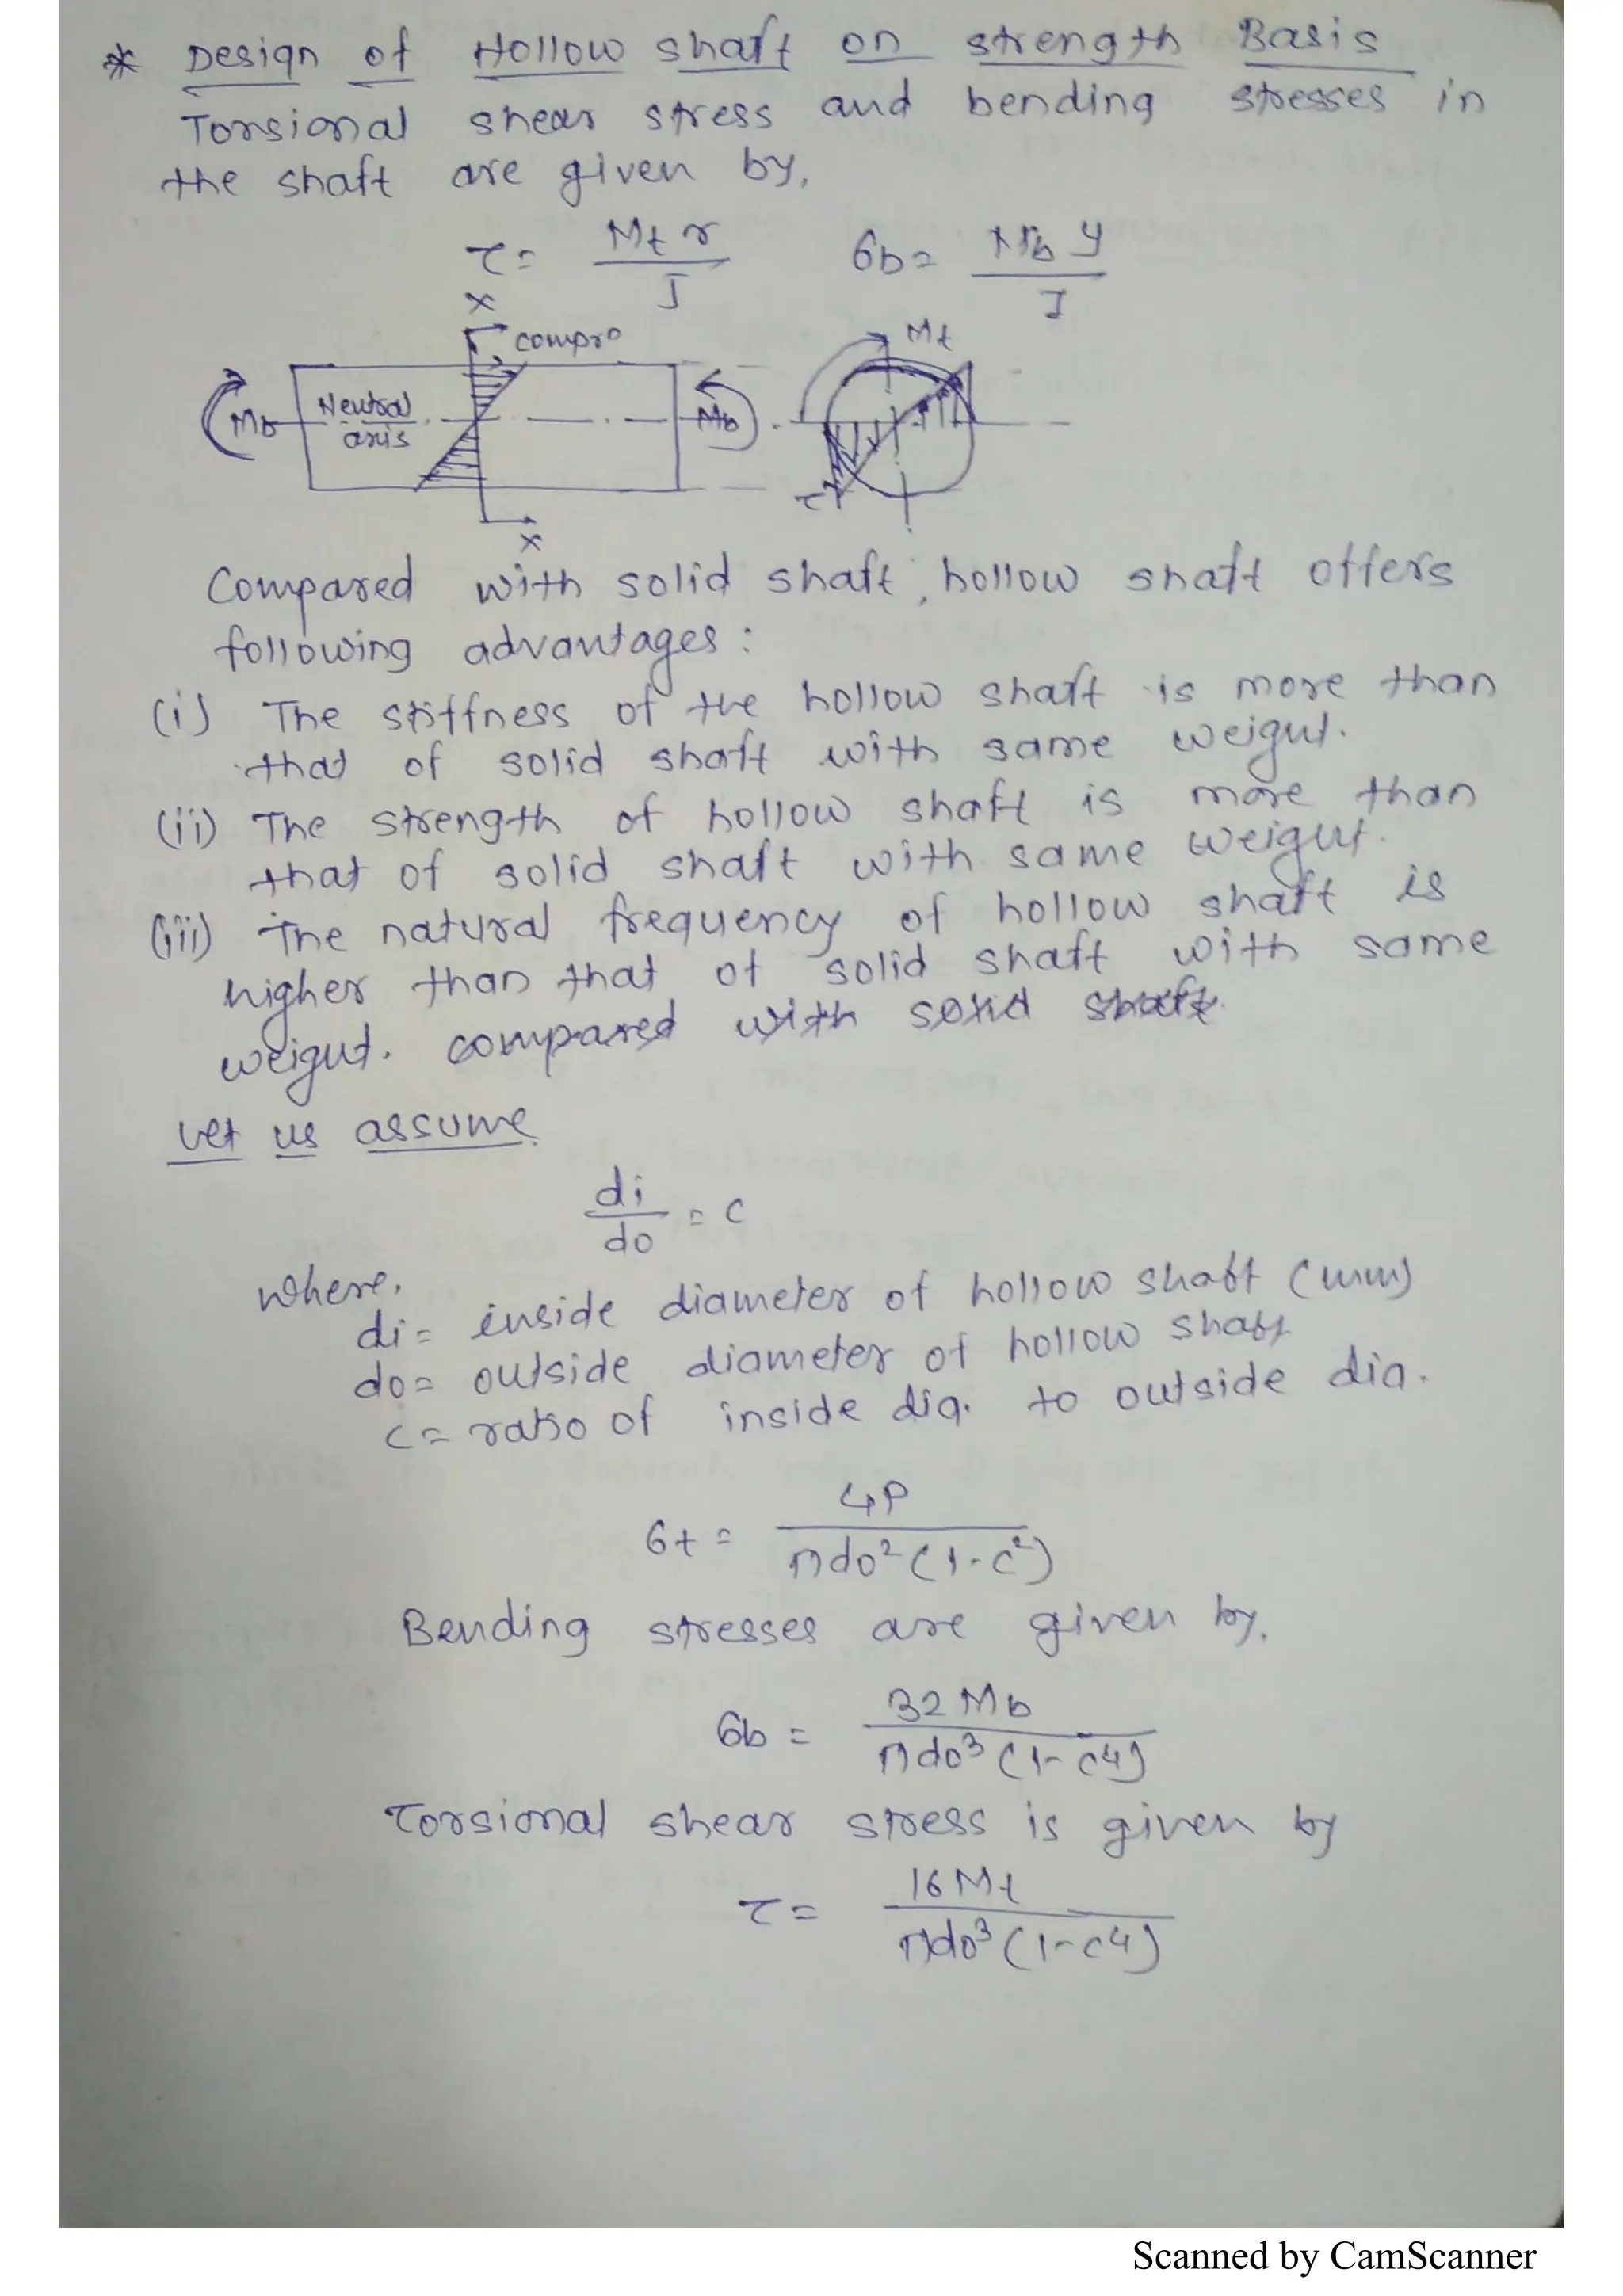 * Design of Hollow shaft on strength Basis
Torsional shear stress and bending stresses in
the shaft are given by,
τ = Mt r / J    σb = Mb y / I
X
compro
Mt
Mb
Neutral
axis
Mb
τ
X
Compared with solid shaft, hollow shaft offers
following advantages:
(i) The stiffness of the hollow shaft is more than
that of solid shaft with same weight.
(ii) The strength of hollow shaft is more than
that of solid shaft with same weight.
(iii) The natural frequency of hollow shaft is
higher than that of solid shaft with same
weight. compared with solid shaft.
Let us assume.
di / do = c
where,
di = inside diameter of hollow shaft (mm)
do = outside diameter of hollow shaft
c = ratio of inside dia. to outside dia.
σt = 4P / πdo²(1-c²)
Bending stresses are given by.
σb = 32 Mb / πdo³(1-c4)
Torsional shear stress is given by
τ = 16Mt / πdo³(1-c4)
Scanned by CamScanner